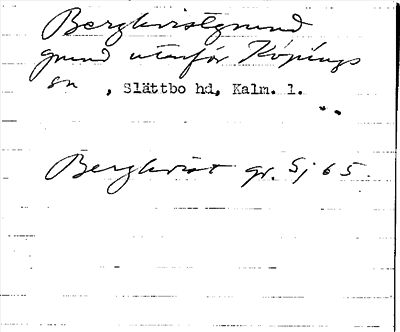 Bergkvistgrund
grund utanför Köpings
sn, Slättbo hd, Kalm. l.
Bergkvist gr. Sj 65.